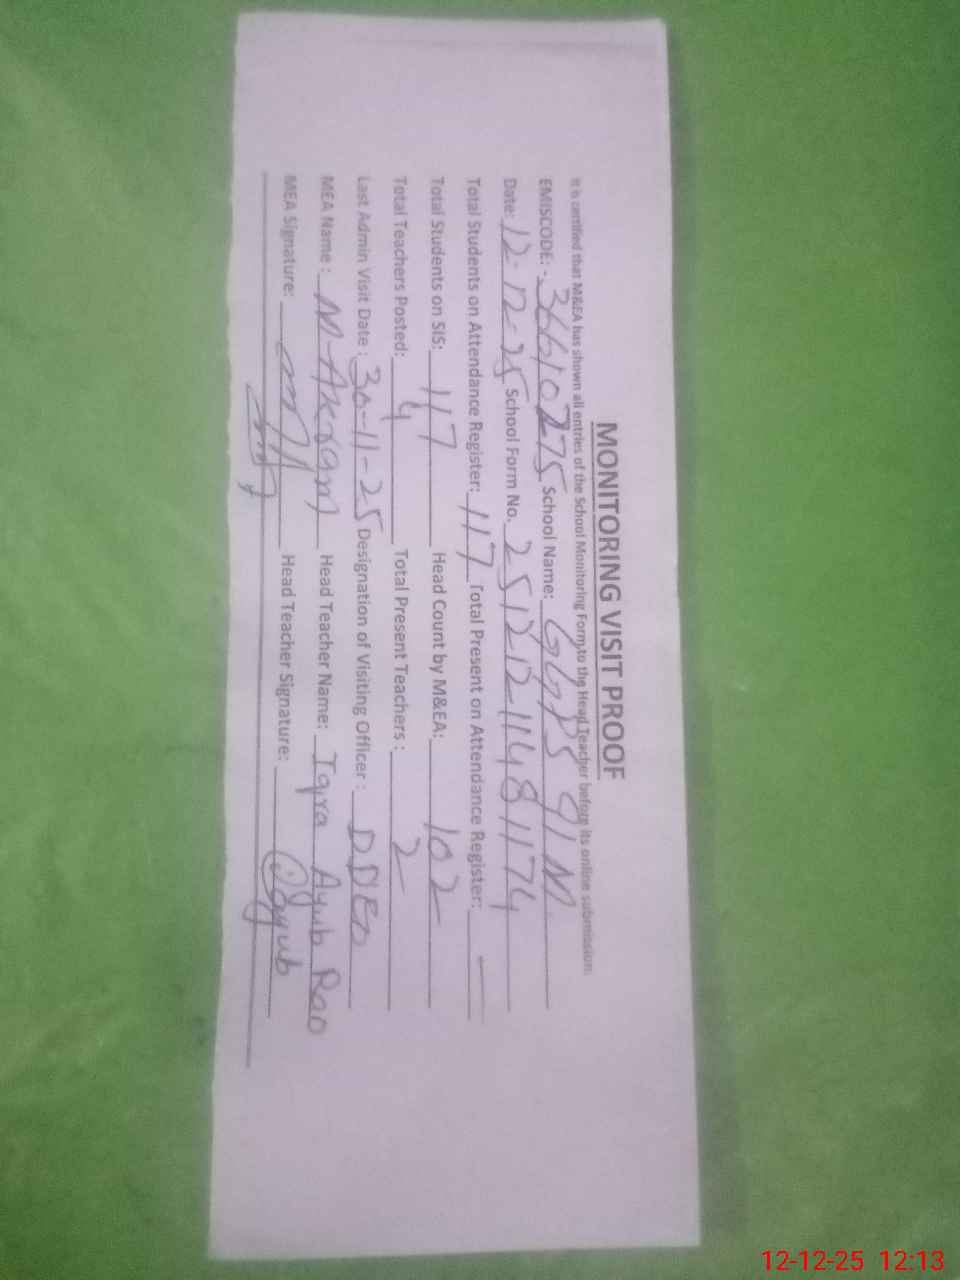 MONITORING VISIT PROOF
It is certified that M&EA has shown all entries of the School Monitoring Form to the Head Teacher before its online submission.
EMISCODE: - 36610275 School Name: GGPS 91 M.
Date: 12-12-25 School Form No. 251212114811174
Total Students on Attendance Register: 117 Total Present on Attendance Register: —
Total Students on SIS: 117 Head Count by M&EA: 102
Total Teachers Posted: 4 Total Present Teachers: 2
Last Admin Visit Date: 30-11-25 Designation of Visiting Officer: DDEO
MEA Name: M-Akram Head Teacher Name: Iqra Ayub Rao
MEA Signature: Head Teacher Signature: @ayub
12-12-25 12:13